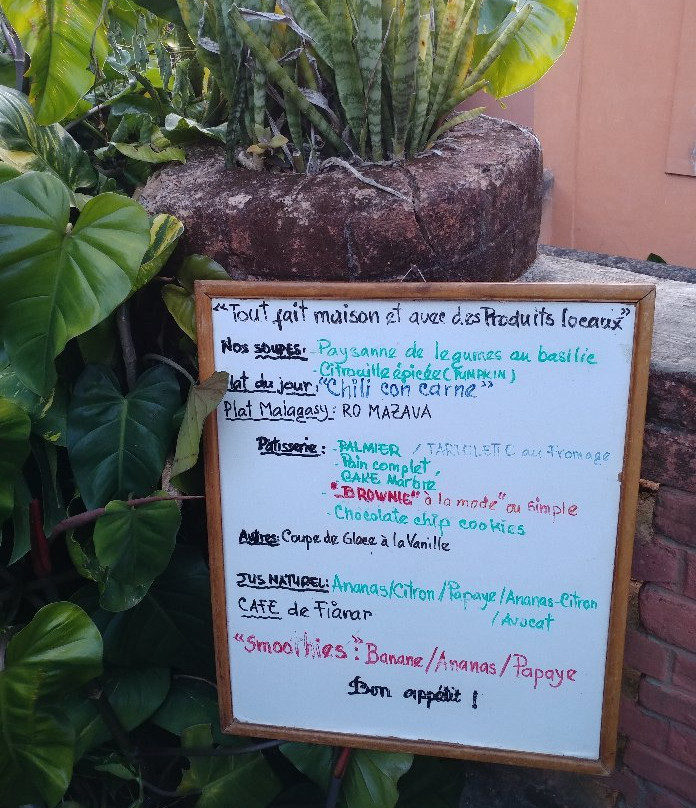 "Tout fait maison et avec des Produits locaux"
Nos SOUPES: - Paysanne de legumes au basilic
- Citrouille épicée (PUMPKIN)
lat du jour: "Chili con carne"
Plat Malagasy: RO MAZAVA
Patisserie: - PALMIER / TARTELETTE au fromage
- Pain complet,
- CAKE Marbré
- "BROWNIE" à la mode" ou simple
- Chocolate chip cookies
Autres: Coupe de Glace à la Vanille
JUS NATUREL: Ananas/Citron/Papaye/Ananas-Citron
/Avocat
CAFE de Fianar
"Smoothies": Banane/Ananas/Papaye
Bon appétit !